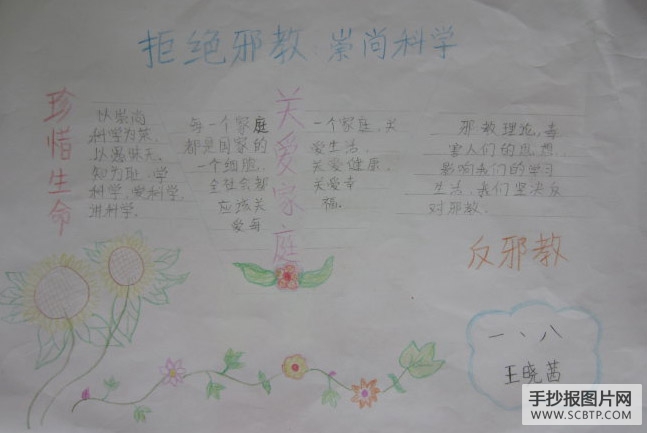 拒绝邪教、崇尚科学
珍惜生命
以崇尚
科学为荣,
以愚昧无
知为耻,学
科学,爱科学,
讲科学。
每一个家庭
都是国家的
一个细胞,
全社会都
应该关
爱每
关爱家庭
一个家庭,关
爱生活,
关爱健康,
关爱幸
福。
邪教理论,毒
害人们的思想,
影响我们的学习
生活,我们坚决反
对邪教。
反邪教
一、八
王晓茜
手抄报图片网
WWW.SCBTP.COM